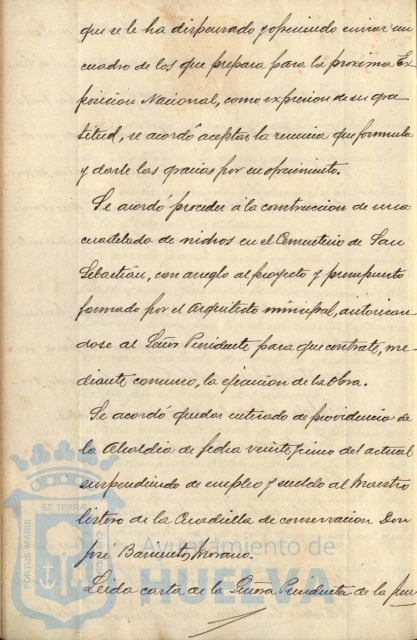 que se le ha dispensado y ofreciendo enviar un
cuadro de los que prepara para la proxima Ex
posicion Nacional, como expresion de su gra
titud, se acordó aceptar la renuncia que formula
y darle las gracias por su ofrecimiento.
Se acordó proceder á la construccion de una
cuartelada de nichos en el Cementerio de San
Sebastián, con arreglo al proyecto y presupuesto
formado por el Arquitecto municipal, autorizan
dose al Señor Presidente para que contrate, me
diante concurso, la ejecucion de la obra.
Se acordó quedar enterado de providencia de
la Alcaldia de fecha veinte y cinco del actual
suspendiendo de empleo y sueldo al Maestro
listero de la Cuadrilla de conservacion Don
José Barruto Morano.
Leida carta de la Señora Presidenta de la
PORTUS MARIS ET TERRAE
Ayuntamiento de
HUELVA